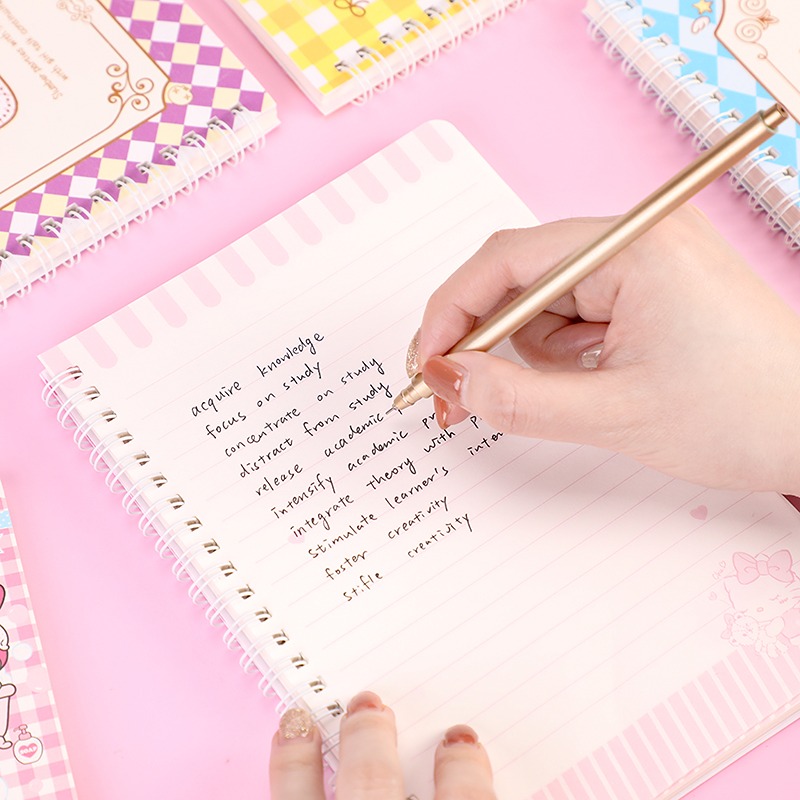 acquire knowledge
focus on study
concentrate on study
distract from study
release academic
intensify academic pr
integrate theory with p
stimulate learner's inter
foster creativity
stifle creativity
SOAP